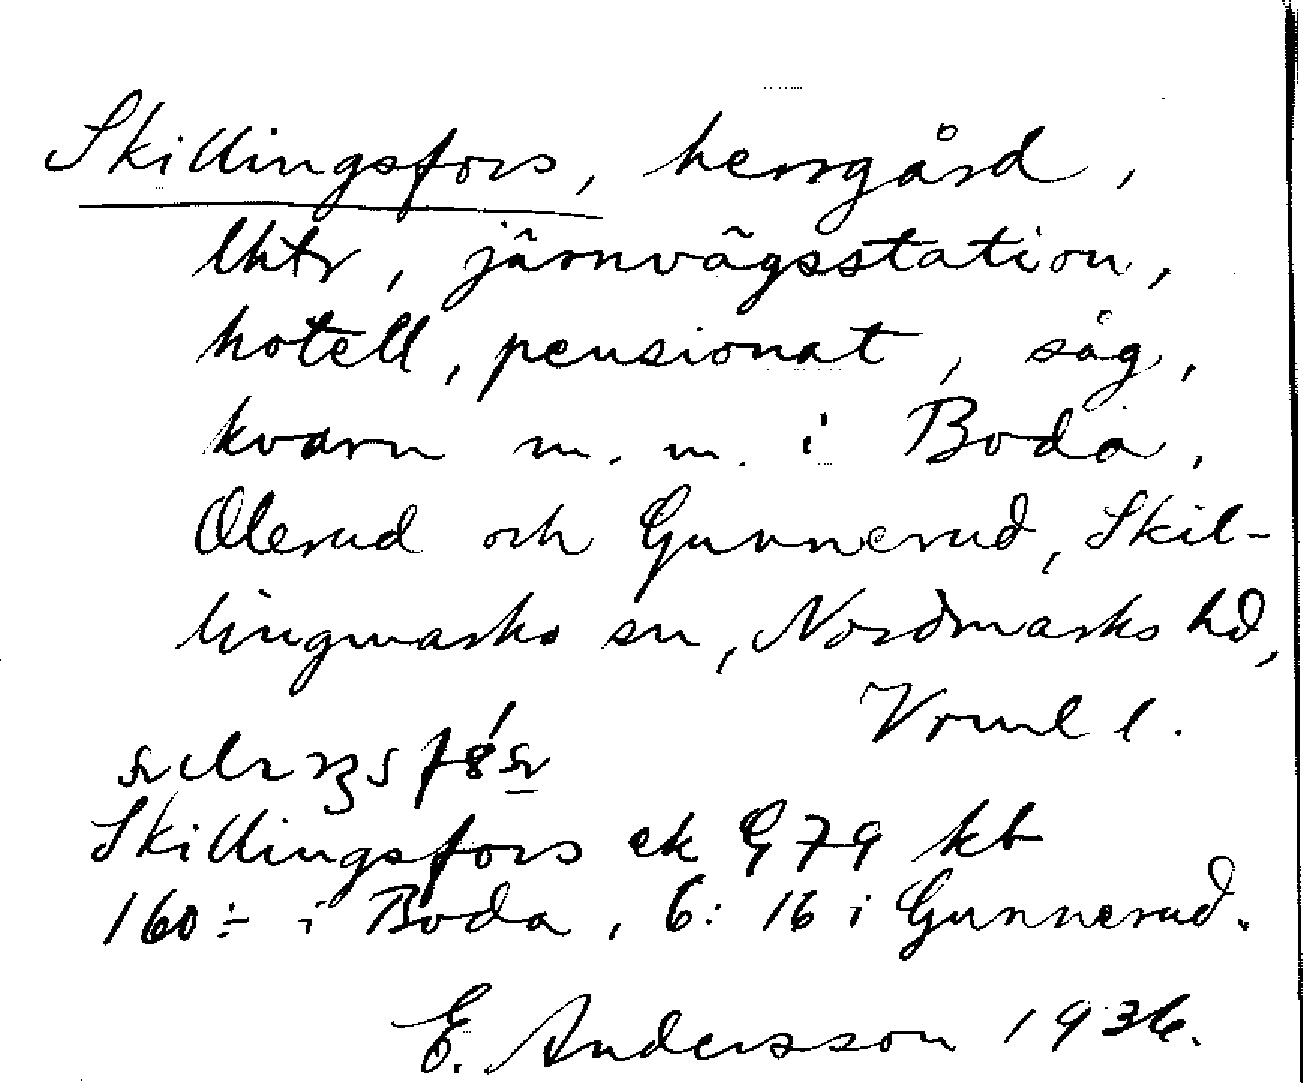 Skillingsfors, herrgård,
lhtr, järnvägsstation,
hotell, pensionat, såg,
kvarn m. m. i Boda,
Olerud och Gunnerud, Skil-
lingmarks sn, Nordmarks hd,
Vrml l.
Skillingsfors ek G 79 kb
160:- i Boda, 6:16 i Gunnerud.
E. Andersson 1936.